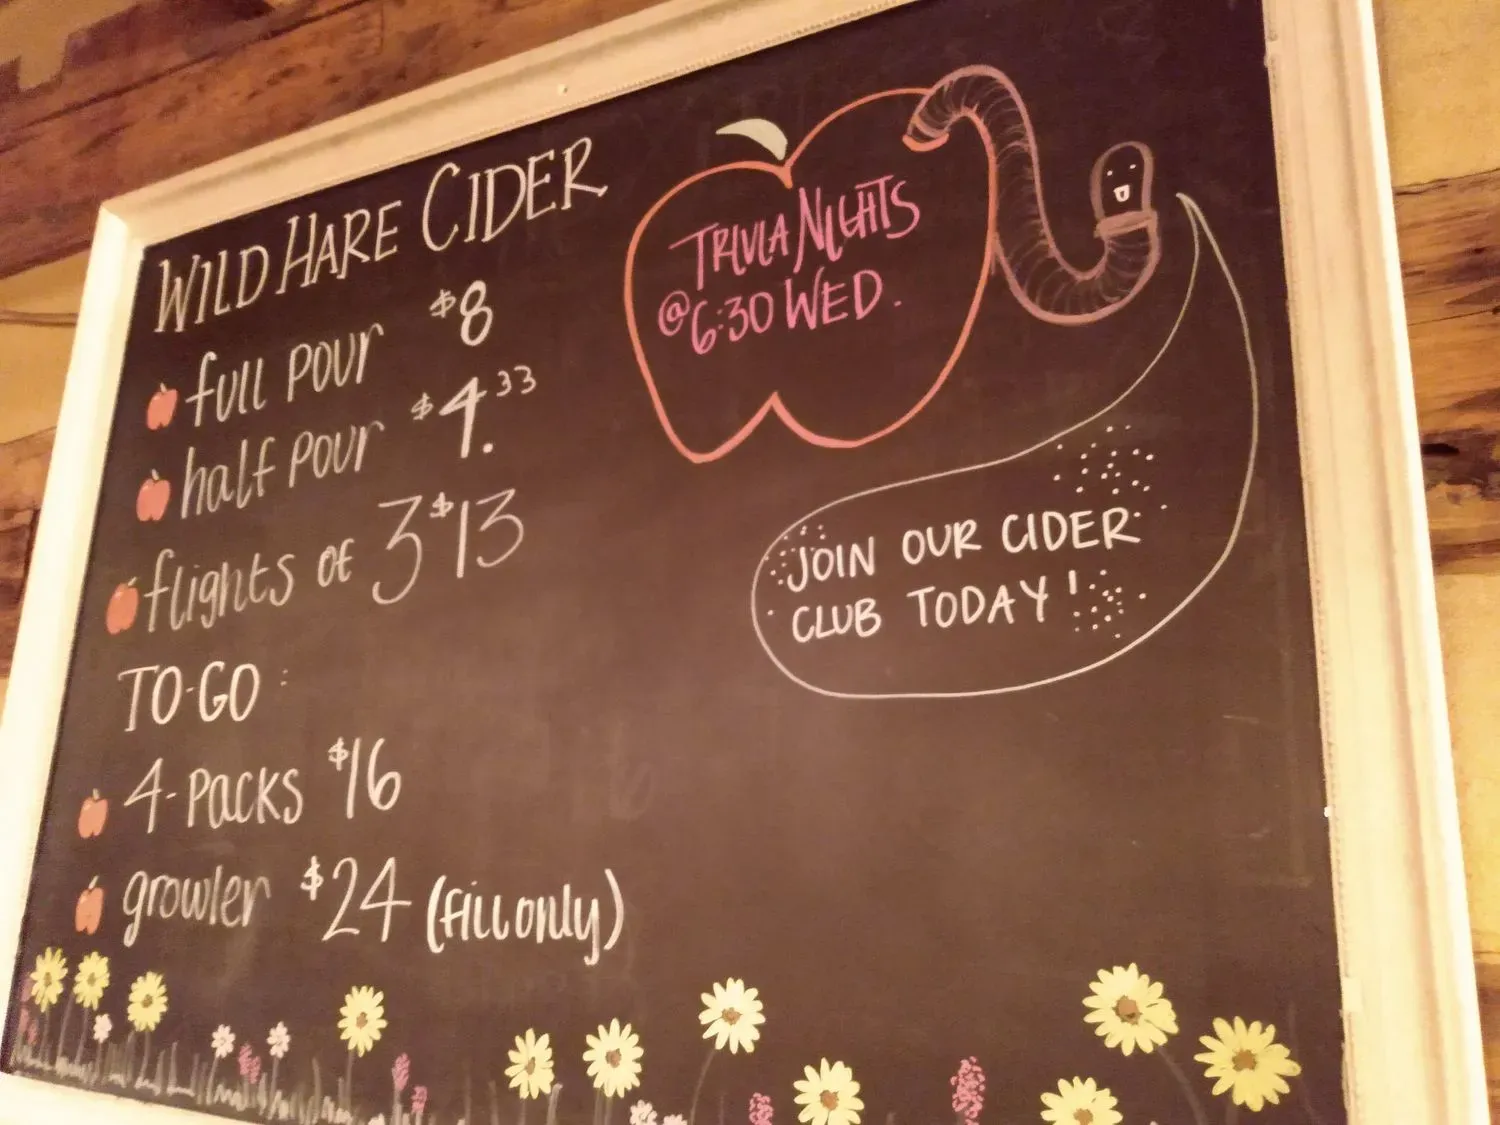 WILD HARE CIDER
full pour $8
half pour $4.33
flights of 3 $13
TO-GO:
4-Packs $16
growler $24 (fill only)
TRIVIA NIGHTS
@ 6:30 WED.
JOIN OUR CIDER
CLUB TODAY!